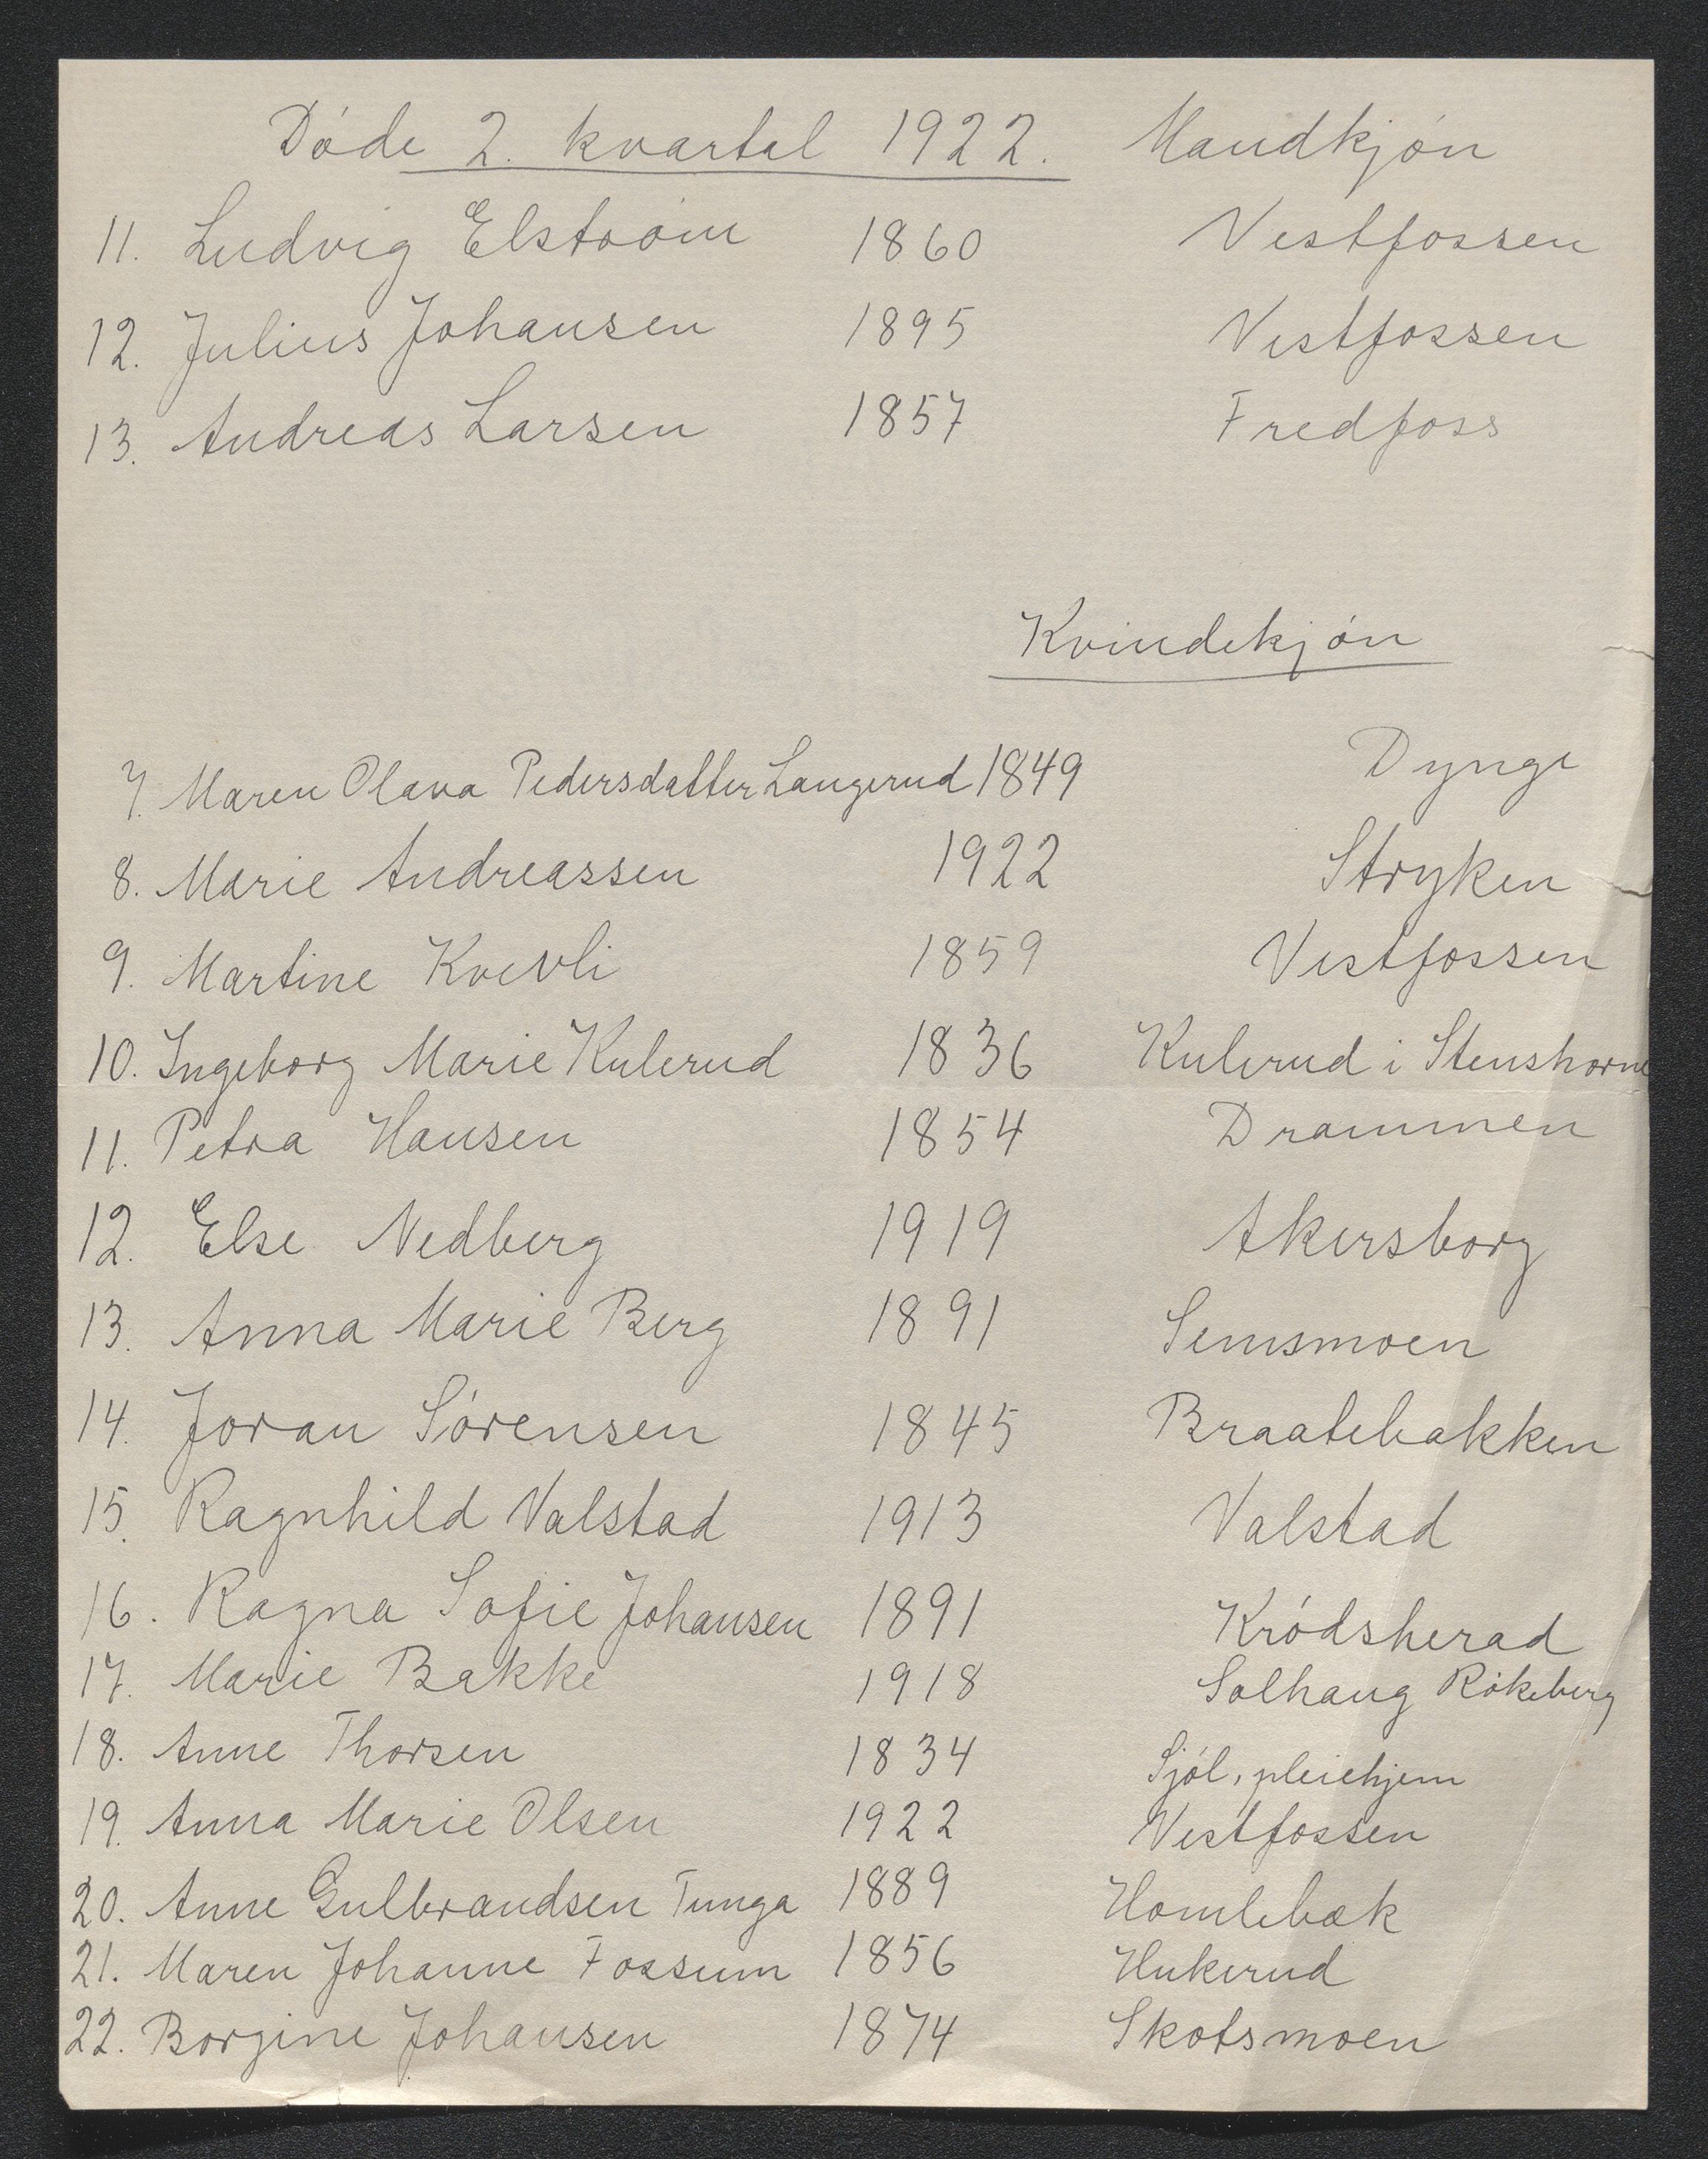 Døde 2. kvartal 1922. Mandkjøn
11. Ludvig Elstrøm 1860 Vestfossen
12. Julius Johansen 1895 Vestfossen
13. Andreas Larsen 1857 Fredfoss
Kvindekjøn
7. Maren Olava Pedersdatter Langerud 1849 Dynge
8. Marie Andreassen 1922 Stryken
9. Martine Kvevli 1859 Vestfossen
10. Ingeborg Marie Kulerud 1836 Kulerud i Stenshorne
11. Petra Hansen 1854 Drammen
12. Else Nedberg 1919 Akersborg
13. Anna Marie Berg 1891 Semsmoen
14. Joran Sørensen 1845 Braatebakken
15. Ragnhild Valstad 1913 Valstad
16. Ragna Sofie Johansen 1891 Krødsherad
17. Marie Bakke 1918 Solhaug Røkeberg
18. Anne Thorsen 1834 Sjøl, pleiehjem
19. Anna Marie Olsen 1922 Vestfossen
20. Anne Gulbrandsen Tunga 1889 Homlebæk
21. Maren Johanne Fossum 1856 Hukerud
22. Borgine Johansen 1874 Skotsmoen